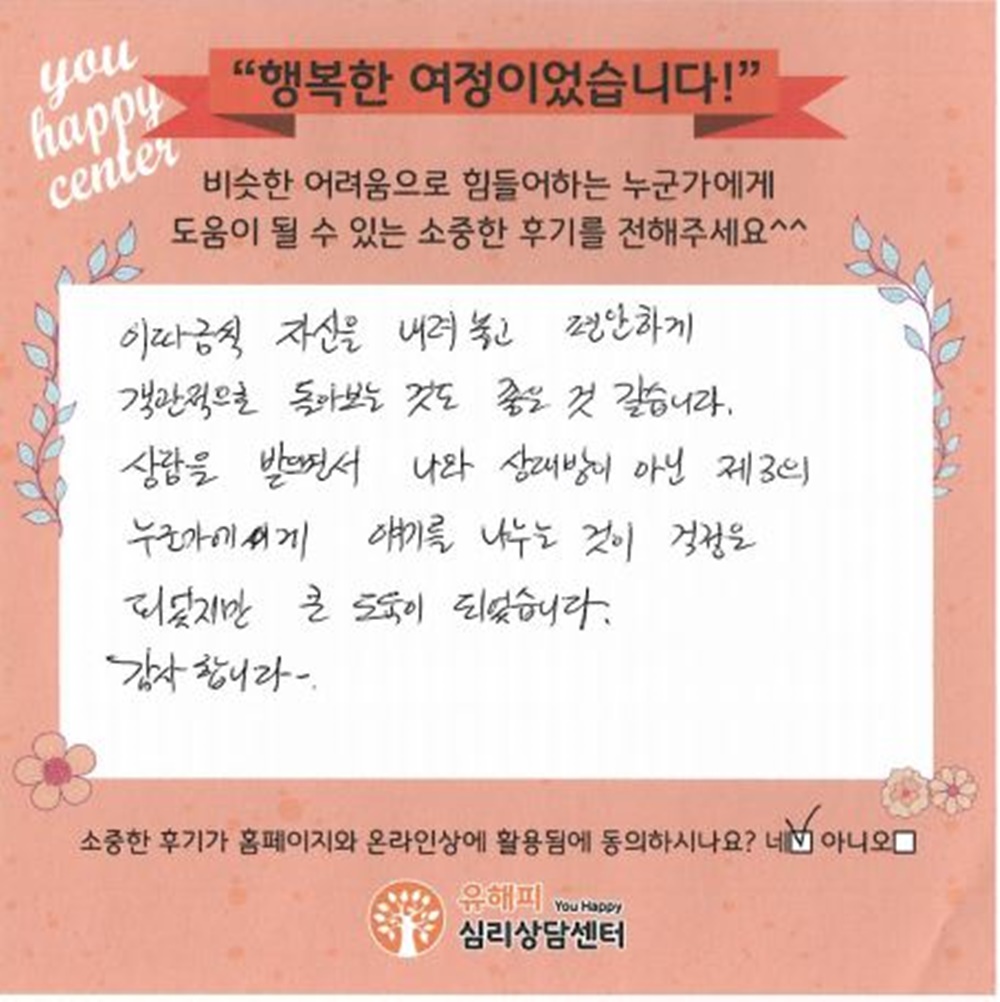 you
happy
center
“행복한 여정이었습니다!”
비슷한 어려움으로 힘들어하는 누군가에게
도움이 될 수 있는 소중한 후기를 전해주세요^^
이따금씩 자신을 내려 놓고 편안하게
객관적으로 돌아보는 것도 좋은 것 같습니다.
상담을 받으면서 나와 상대방이 아닌 제3의
누군가에게 얘기를 나누는 것이 걱정은
되었지만 큰 도움이 되었습니다.
감사합니다-.
소중한 후기가 홈페이지와 온라인상에 활용됨에 동의하시나요? 네 아니오
유해피 You Happy
심리상담센터